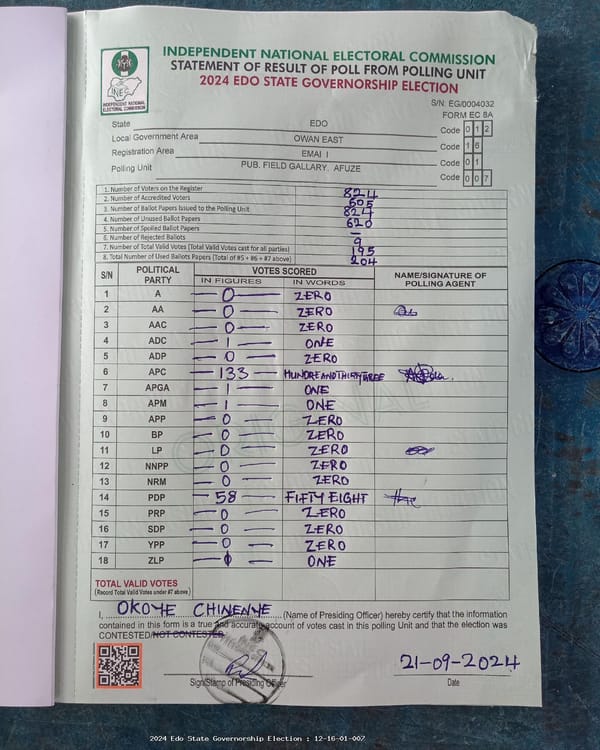 INDEPENDENT NATIONAL ELECTORAL COMMISSION
STATEMENT OF RESULT OF POLL FROM POLLING UNIT
2024 EDO STATE GOVERNORSHIP ELECTION
INEC
INDEPENDENT NATIONAL ELECTORAL COMMISSION
S/N. EG/0004032
FORM EC 8A
State EDO Code 0 1 2
Local Government Area OWAN EAST Code 1 6
Registration Area EMAI I Code 0 1
Polling Unit PUB. FIELD GALLARY. AFUZE Code 0 0 7
1. Number of Voters on the Register 824
2. Number of Accredited Voters 605
3. Number of Ballot Papers Issued to the Polling Unit 824
4. Number of Unused Ballot Papers 620
5. Number of Spoiled Ballot Papers —
6. Number of Rejected Ballots 9
7. Number of Total Valid Votes (Total Valid Votes cast for all parties) 195
8. Total Number of Used Ballots Papers (Total of #5 + #6 + #7 above) 204
S/N POLITICAL PARTY VOTES SCORED NAME/SIGNATURE OF POLLING AGENT
IN FIGURES IN WORDS
1 A 0 ZERO
2 AA 0 ZERO
3 AAC 0 ZERO
4 ADC 1 ONE
5 ADP 0 ZERO
6 APC 133 HUNDREANDTHIRTYTHREE
7 APGA 1 ONE
8 APM 1 ONE
9 APP 0 ZERO
10 BP 0 ZERO
11 LP 0 ZERO
12 NNPP 0 ZERO
13 NRM 0 ZERO
14 PDP 58 FIFTY EIGHT
15 PRP 0 ZERO
16 SDP 0 ZERO
17 YPP 0 ZERO
18 ZLP ONE
TOTAL VALID VOTES
(Record Total Valid Votes under #7 above)
I, OKOYE CHINENYE (Name of Presiding Officer) hereby certify that the information
contained in this form is a true and accurate account of votes cast in this polling Unit and that the election was
CONTESTED/NOT CONTESTED.
21-09-2024
Sign/Stamp of Presiding Officer Date
2024 Edo State Governorship Election : 12-16-01-007